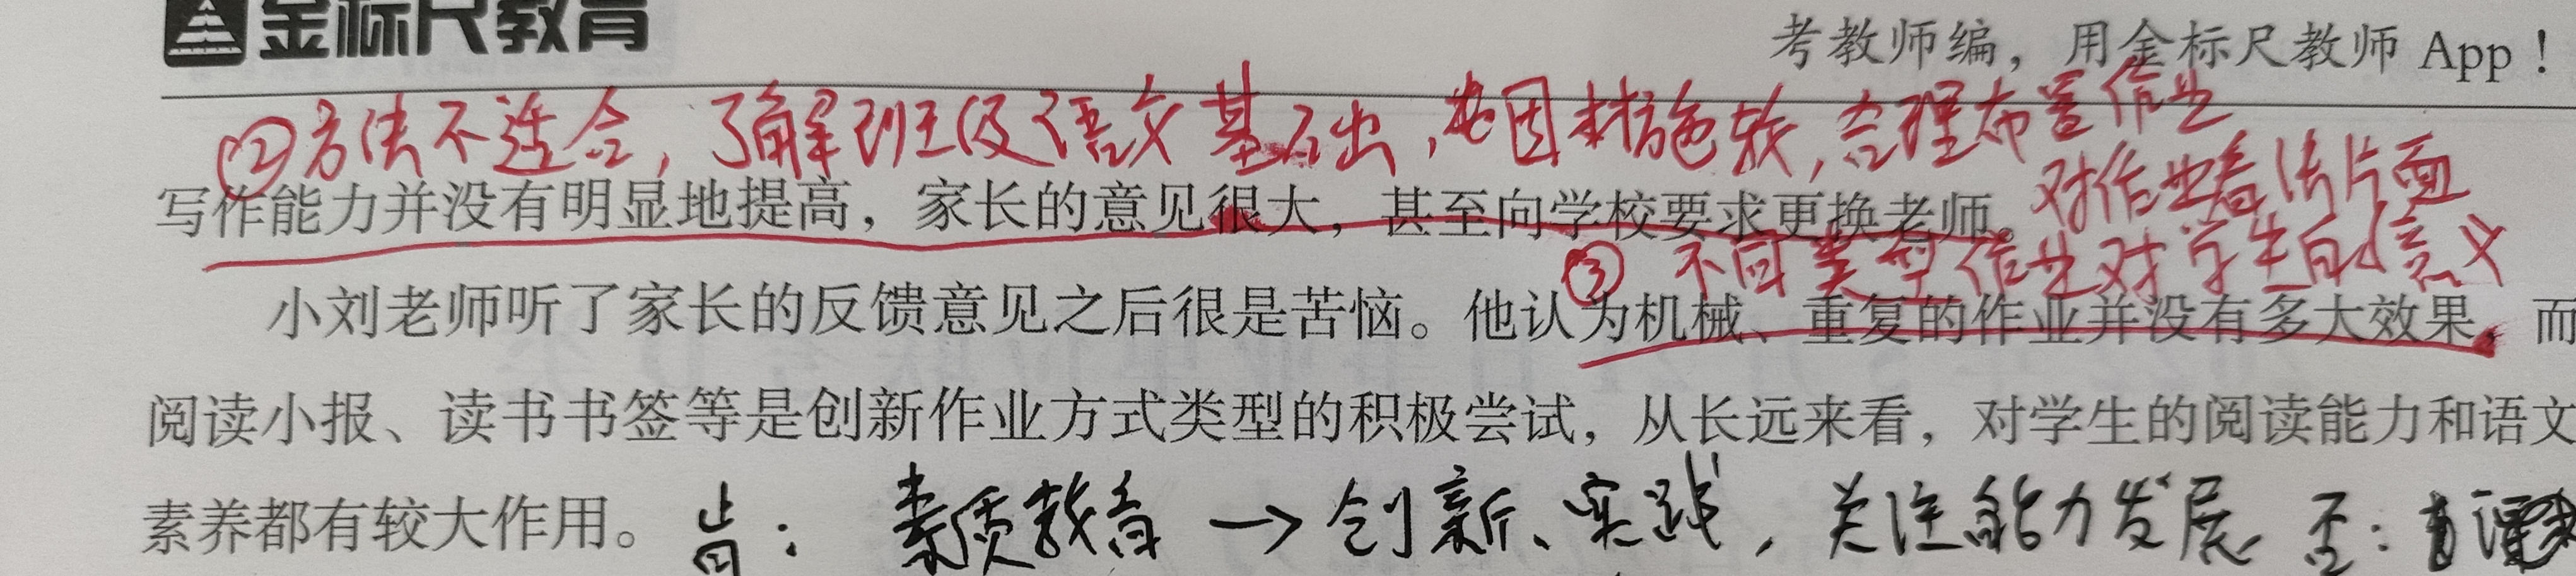 金标尺教育
考教师编，用金标尺教师 App！
②方法不适合，了解班级语文基础，因材施教，合理布置作业
写作能力并没有明显地提高，家长的意见很大，甚至向学校要求更换老师。
对作业看法片面
③不同类型作业对学生的意义
小刘老师听了家长的反馈意见之后很是苦恼。他认为机械、重复的作业并没有多大效果，而
阅读小报、读书书签等是创新作业方式类型的积极尝试，从长远来看，对学生的阅读能力和语文
素养都有较大作用。
肯：素质教育→创新、实践，关注能力发展 否：